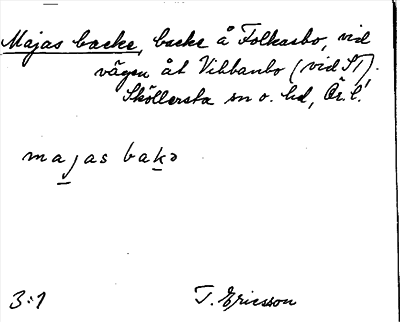 Majas backe, backe å Folkasbo, vid
vägen åt Vibbanbo (vid S1).
Sköllersta sn o. hd, Ör. l.
majas bakə
3:1
T. Ericsson